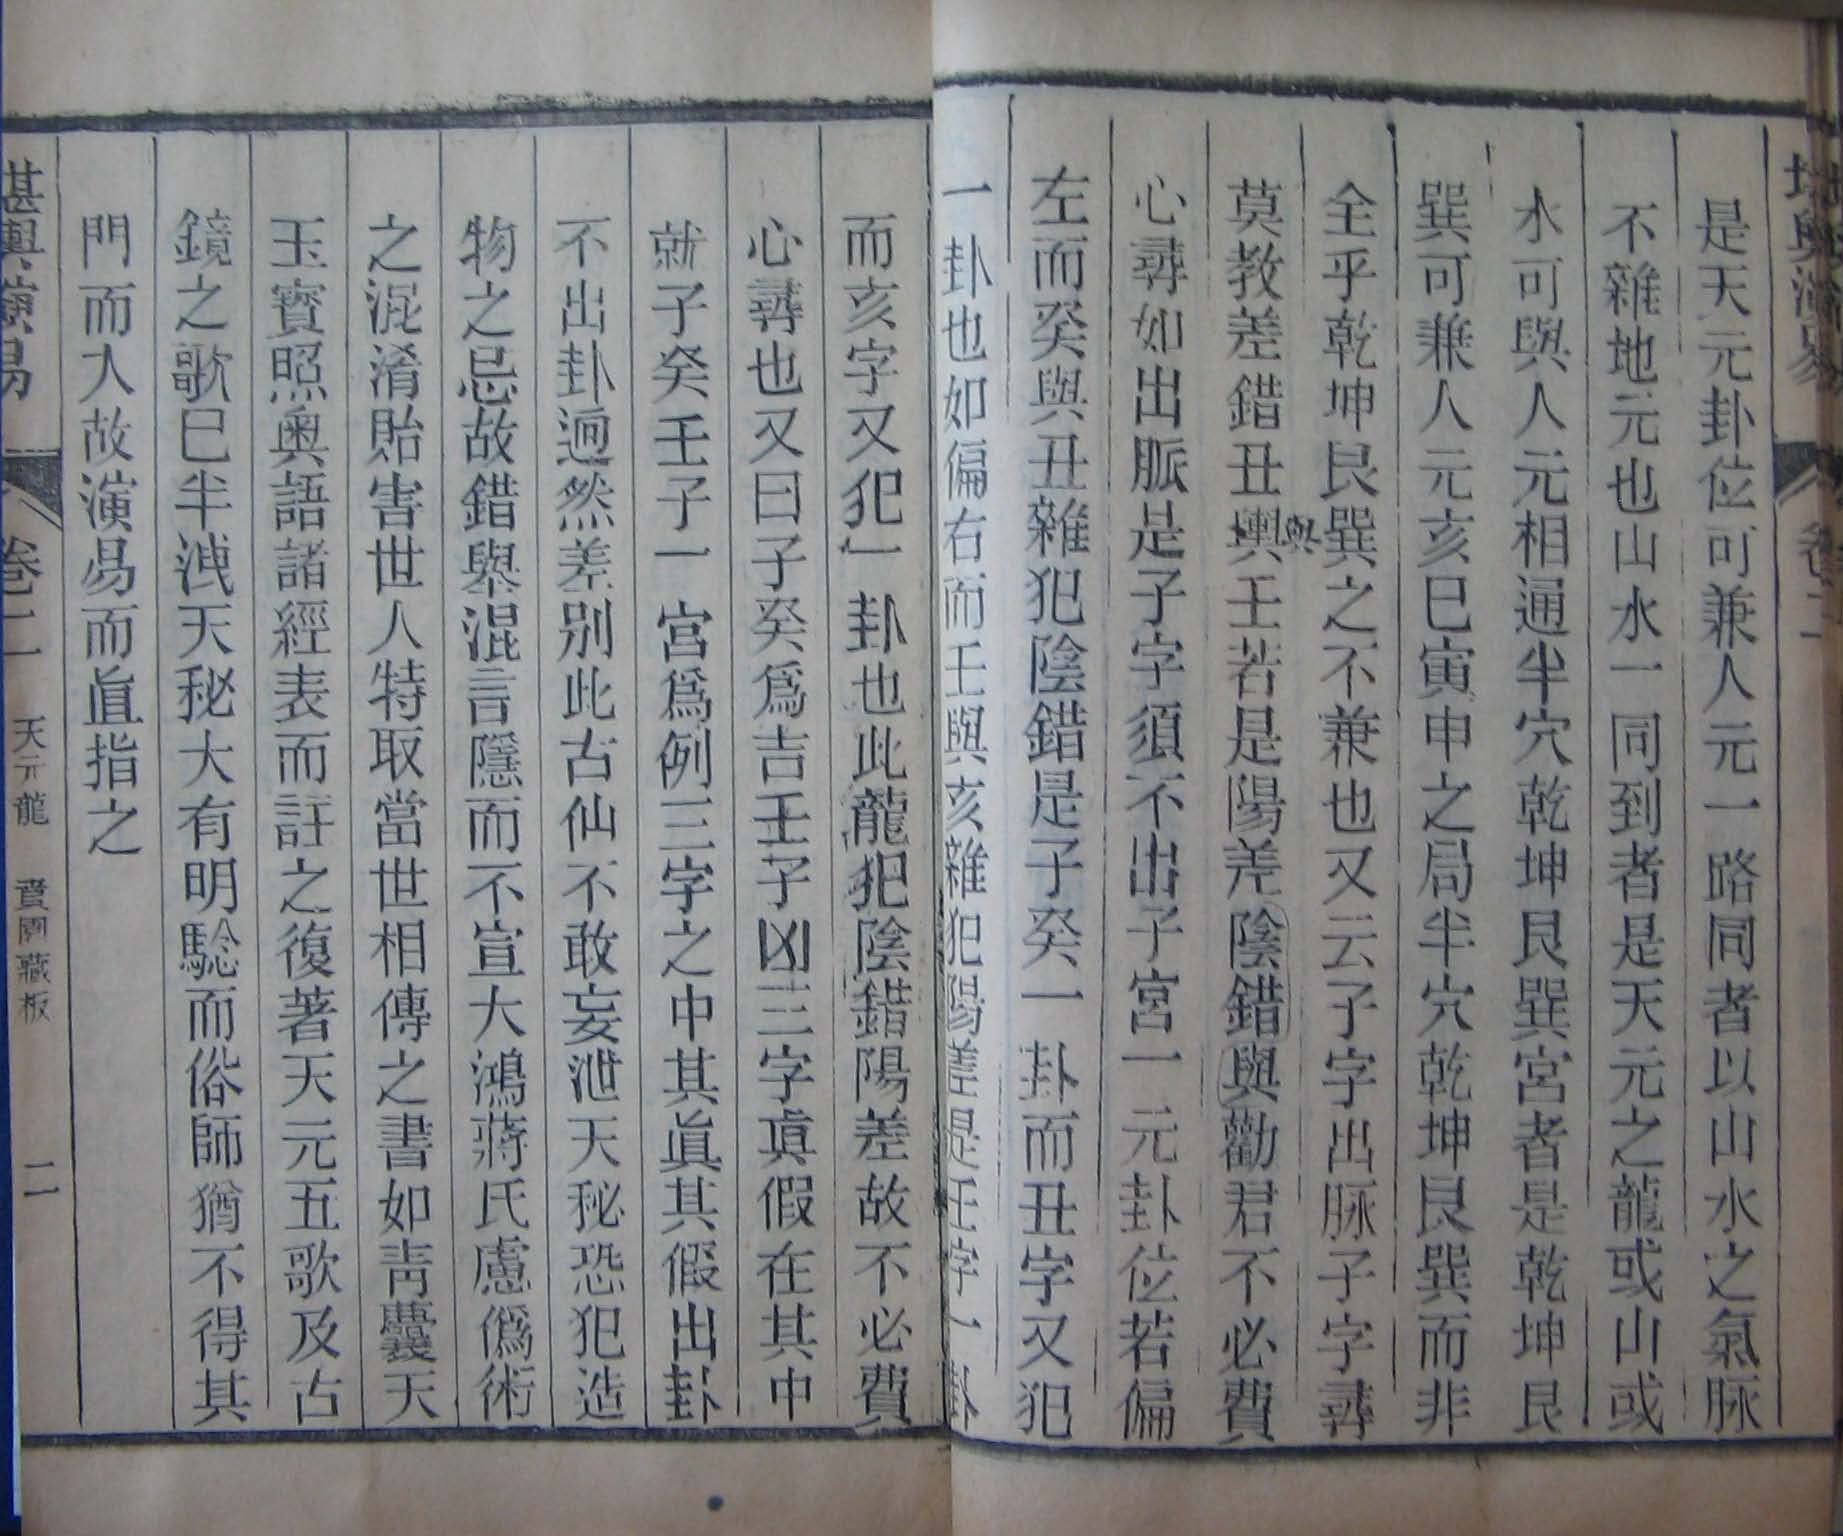 堪輿演易
卷二
是天元卦位可兼人元一路同者以山水之氣脈
不雜地元也山水一同到者是天元之龍或山或
水可與人元相通半穴乾坤艮巽宮者是乾坤艮
巽可兼人元亥巳寅申之局半穴乾坤艮巽而非
全乎乾坤艮巽之不兼也又云子字出脈子字尋
莫教差錯丑輿壬若是陽差陰錯與勸君不必費
與
心尋如出脈是子字須不出子宮一元卦位若偏
左而癸與丑雜犯陰錯是子癸一卦而丑字又犯
一卦也如偏右而壬與亥雜犯陽差是壬字一卦
而亥字又犯一卦也此龍犯陰錯陽差故不必費
心尋也又曰子癸爲吉壬子凶三字眞假在其中
就子癸壬子一宮爲例三字之中其眞其假出卦
不出卦迥然差別此古仙不敢妄泄天秘恐犯造
物之忌故錯舉混言隱而不宣大鴻蔣氏慮僞術
之混淆貽害世人特取當世相傳之書如靑囊天
玉寶照奧語諸經表而註之復著天元五歌及古
鏡之歌巳半洩天秘大有明騐而俗師猶不得其
門而入故演易而直指之
堪輿演易
卷二
天元龍
二
藏板